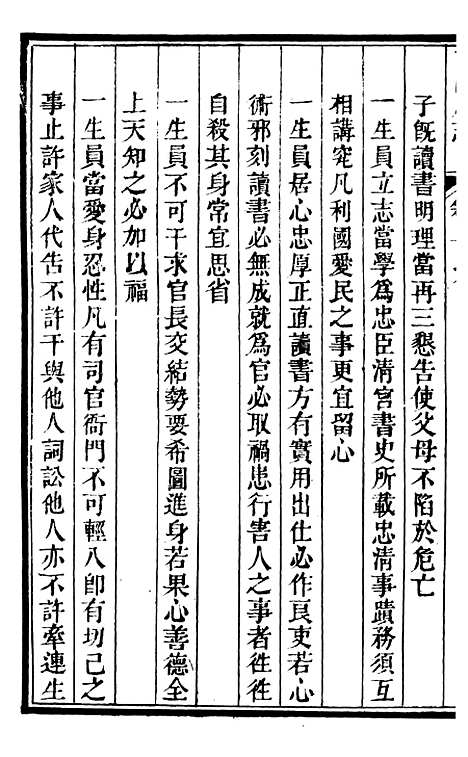 子旣讀書明理當再三懇告使父母不陷於危亡
一生員立志當學爲忠臣清宮書史所載忠清事蹟務須互
相講究凡利國愛民之事更宜留心
一生員居心忠厚正直讀書方有實用出仕必作良吏若心
術邪刻讀書必無成就爲官必取禍患行害人之事者徃徃
自殺其身常宜思省
一生員不可干求官長交結勢要希圖進身若果心善德全
上天知之必加以福
一生員當愛身忍性凡有司官衙門不可輕入卽有切己之
事止許家人代告不許干與他人詞訟他人亦不許牽連生